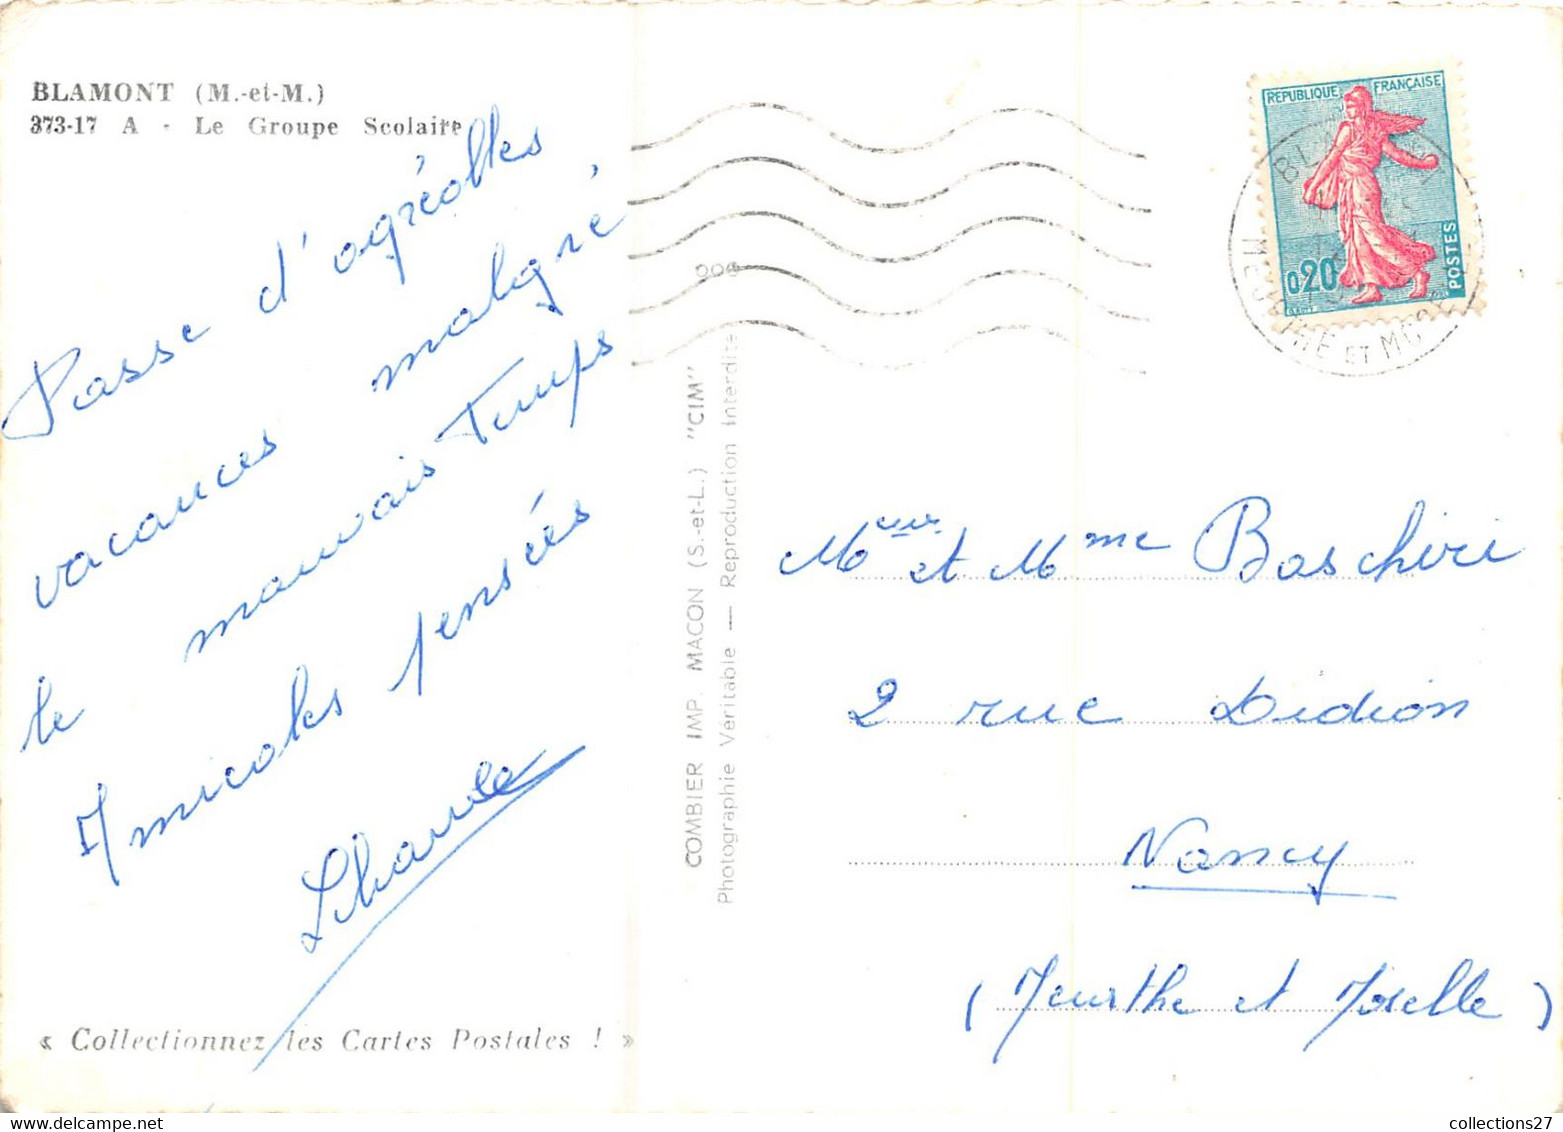 BLAMONT (M.-et-M.)
373-17 A - Le Groupe Scolaire
Passe d'agréables
vacances malgré
le mauvais temps
Amicales pensées
« Collectionnez les Cartes Postales ! »
COMBIER IMP. MACON (S.-et-L.) "CIM"
Photographie Véritable — Reproduction Interdite
REPUBLIQUE FRANÇAISE
0,20
POSTES
MEURTHE ET MOSELLE
Meur et Mme Baschiri
2 rue Didion
Nancy
(Meurthe et Moselle)
collections27